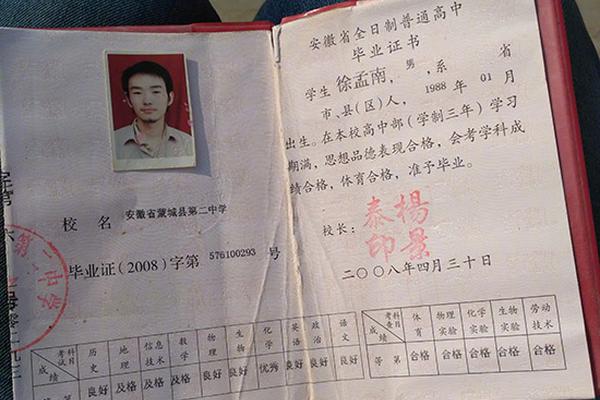 校名 安徽省蒙城县第二中学
毕业证(2008)字第 576100293 号
考试科目 历史 地理 信息技术 数学 物理 生物 化学 英语 政治 语文
成绩
等第 良好 及格 及格 及格 良好 良好 优秀 良好 良好 良好
安徽省全日制普通高中
毕业证书
学生 徐孟南,男,系 省
市、县(区)人,1988 年 01 月
出生。在本校高中部(学制三年)学习
期满,思想品德表现合格,会考学科成
绩合格,体育合格,准予毕业。
校长: 楊景泰印
二〇〇八年四月三十日
考查科目 体育 物理实验 化学实验 生物实验 劳动技术
成绩
等第 合格 合格 合格 合格 合格